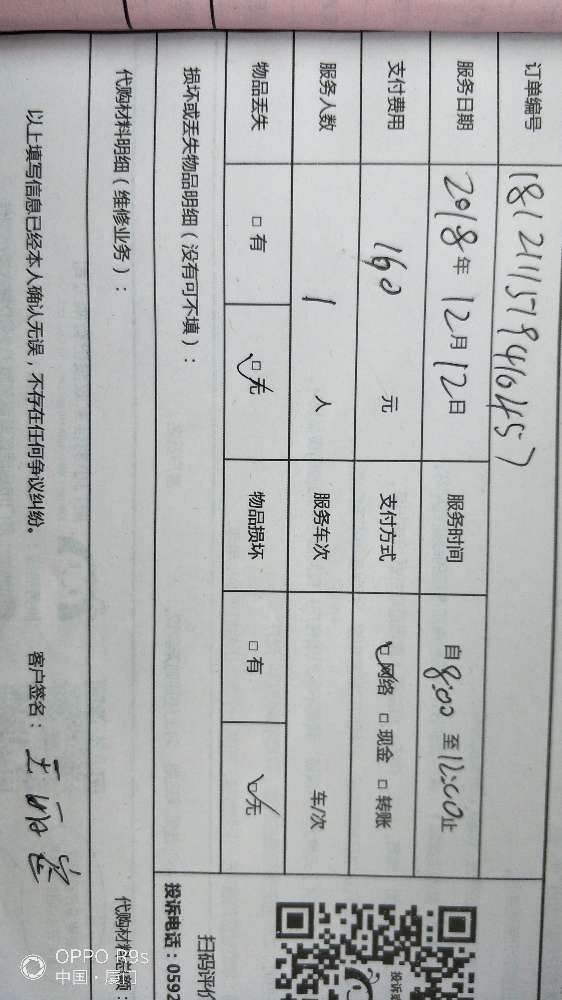 订单编号 1812111579410457
服务日期 2018年12月12日 服务时间 自8:00至12:00止
支付费用 160元 支付方式 ☑网络 □现金 □转账
服务人数 1人 服务车次 车/次
物品丢失 □有 ☑无 物品损坏 □有 ☑无
损坏或丢失物品明细(没有可不填):
扫码评价
投诉电话:0592
代购材料明细(维修业务):
代购材料总额:
以上填写信息已经本人确认无误,不存在任何争议纠纷。 客户签名:
OPPO R9s
中国·厦门